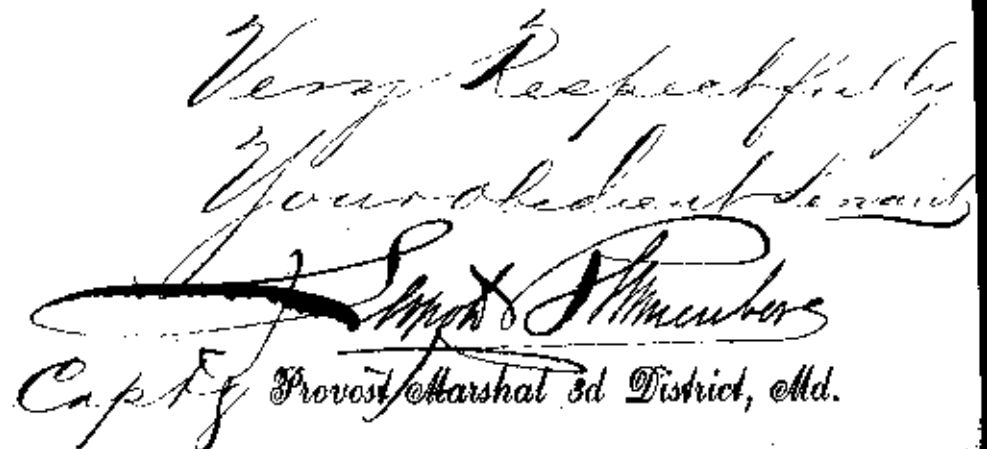 Very Respectfully
Your obedient Servant
Capt & Provost Marshal 3d District, Md.